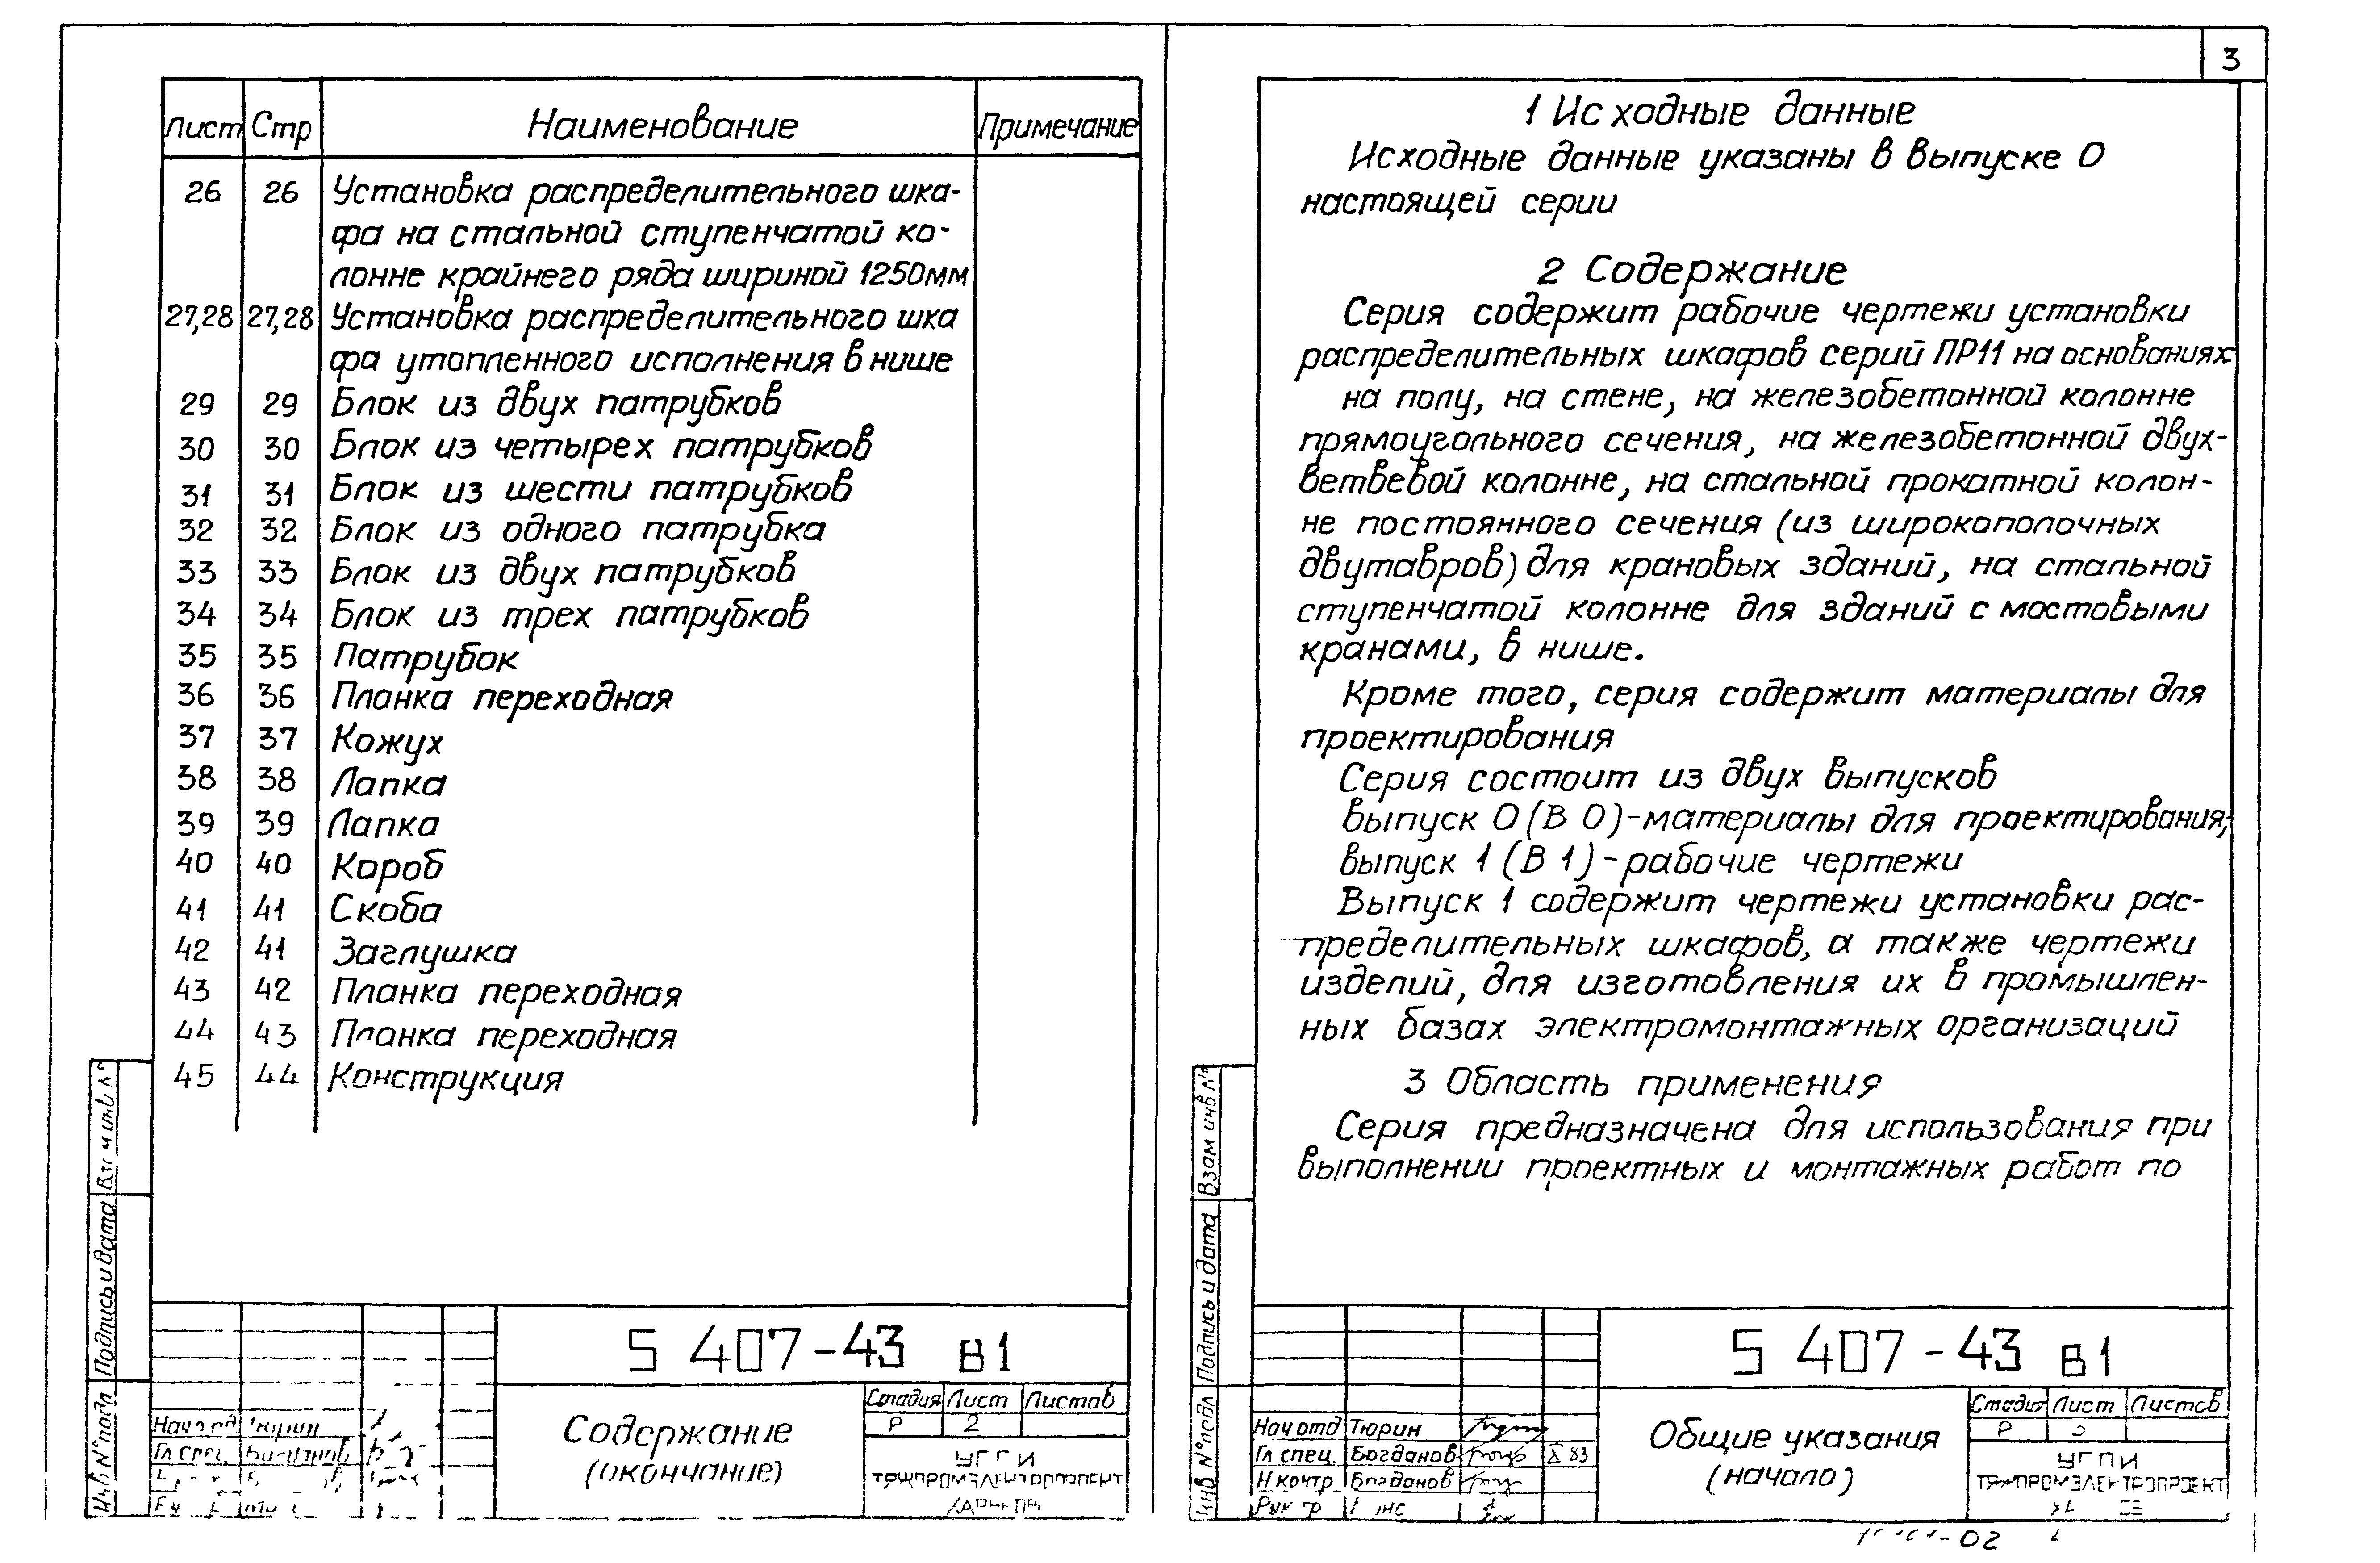 Лист Стр Наименование Примечание
26 26 Установка распределительного шка-
фа на стальной ступенчатой ко-
лонне крайнего ряда шириной 1250мм
27,28 27,28 Установка распределительного шка
фа утопленного исполнения в нише
29 29 Блок из двух патрубков
30 30 Блок из четырех патрубков
31 31 Блок из шести патрубков
32 32 Блок из одного патрубка
33 33 Блок из двух патрубков
34 34 Блок из трех патрубков
35 35 Патрубок
36 36 Планка переходная
37 37 Кожух
38 38 Лапка
39 39 Лапка
40 40 Короб
41 41 Скоба
42 41 Заглушка
43 42 Планка переходная
44 43 Планка переходная
45 44 Конструкция
инв
Подпись и дата
Инв №подл
5 407-43 В1
Содержание
(окончание)
Стадия Лист Листов
Р 2
УГПИ
Нач
Гл спец.
3
1 Исходные данные
Исходные данные указаны в выпуске 0
настоящей серии
2 Содержание
Серия содержит рабочие чертежи установки
распределительных шкафов серий ПР11 на основаниях
на полу, на стене, на железобетонной колонне
прямоугольного сечения, на железобетонной двух-
ветвевой колонне, на стальной прокатной колон-
не постоянного сечения (из широкополочных
двутавров) для крановых зданий, на стальной
ступенчатой колонне для зданий с мостовыми
кранами, в нише.
Кроме того, серия содержит материалы для
проектирования
Серия состоит из двух выпусков
выпуск 0 (В 0)-материалы для проектирования;
выпуск 1 (В 1)-рабочие чертежи
Выпуск 1 содержит чертежи установки рас-
пределительных шкафов, а также чертежи
изделий, для изготовления их в промышлен-
ных базах электромонтажных организаций
3 Область применения
Серия предназначена для использования при
выполнении проектных и монтажных работ по
Взам инв №
Подпись и дата
Инв №подл
5 407-43 В1
Общие указания
(начало)
Стадия Лист Листов
Р
УГПИ
ТЯЖПРОМЭЛЕКТРОПРОЕКТ
Нач отд Тюрин
Гл спец. Богданов X 83
Н контр Богданов
Рук гр
-02